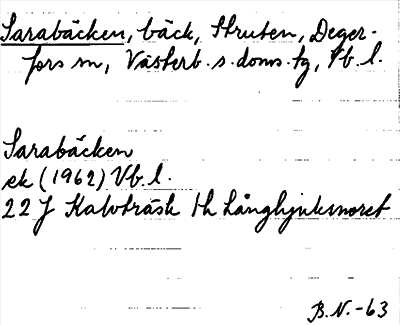 Sarabäcken, bäck, Struten, Deger-
fors sn, Västerb. s. doms. tg, Vb. l.
Sarabäcken
ek (1962) Vb. l.
22 J Kalvträsk th Långhjuksmoret
B.N. -63